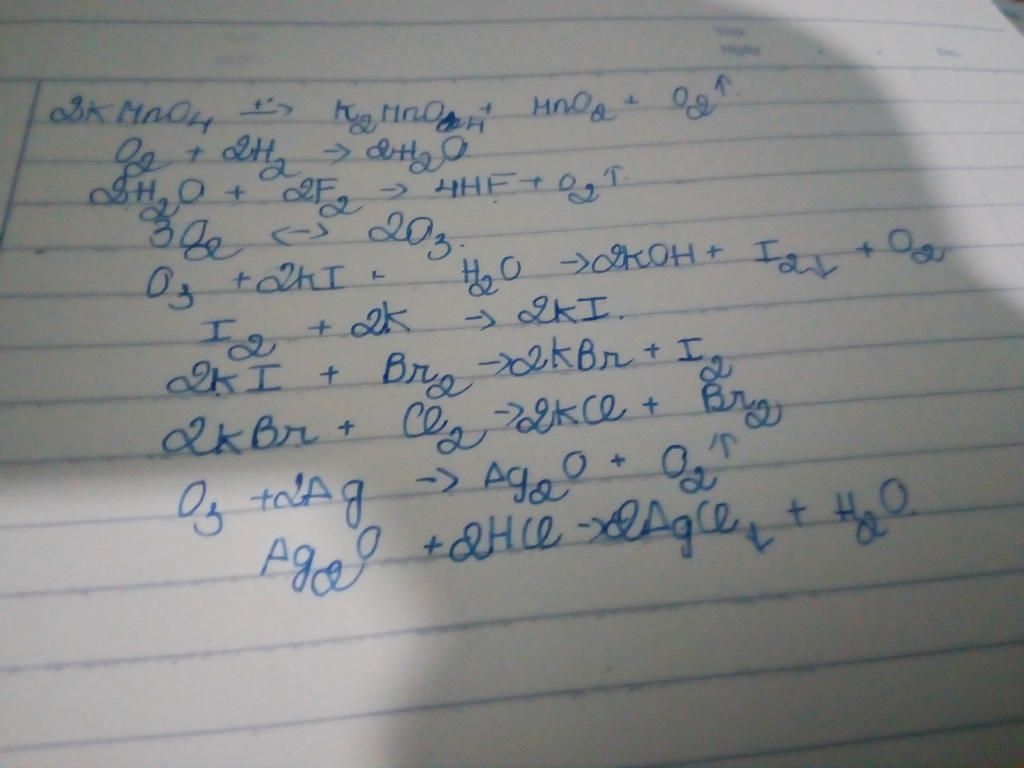 Thứ
Ngày
No.
2KMnO₄ –t°→ K₂MnO₄ + MnO₂ + O₂↑.
O₂ + 2H₂ → 2H₂O
2H₂O + 2F₂ → 4HF + O₂↑.
3O₂ <–> 2O₃.
O₃ + 2KI + H₂O → 2KOH + I₂↓ + O₂
I₂ + 2K → 2KI.
2KI + Br₂ → 2KBr + I₂
2KBr + Cl₂ → 2KCl + Br₂
O₃ + 2Ag → Ag₂O + O₂↑
Ag₂O + 2HCl → 2AgCl↓ + H₂O.